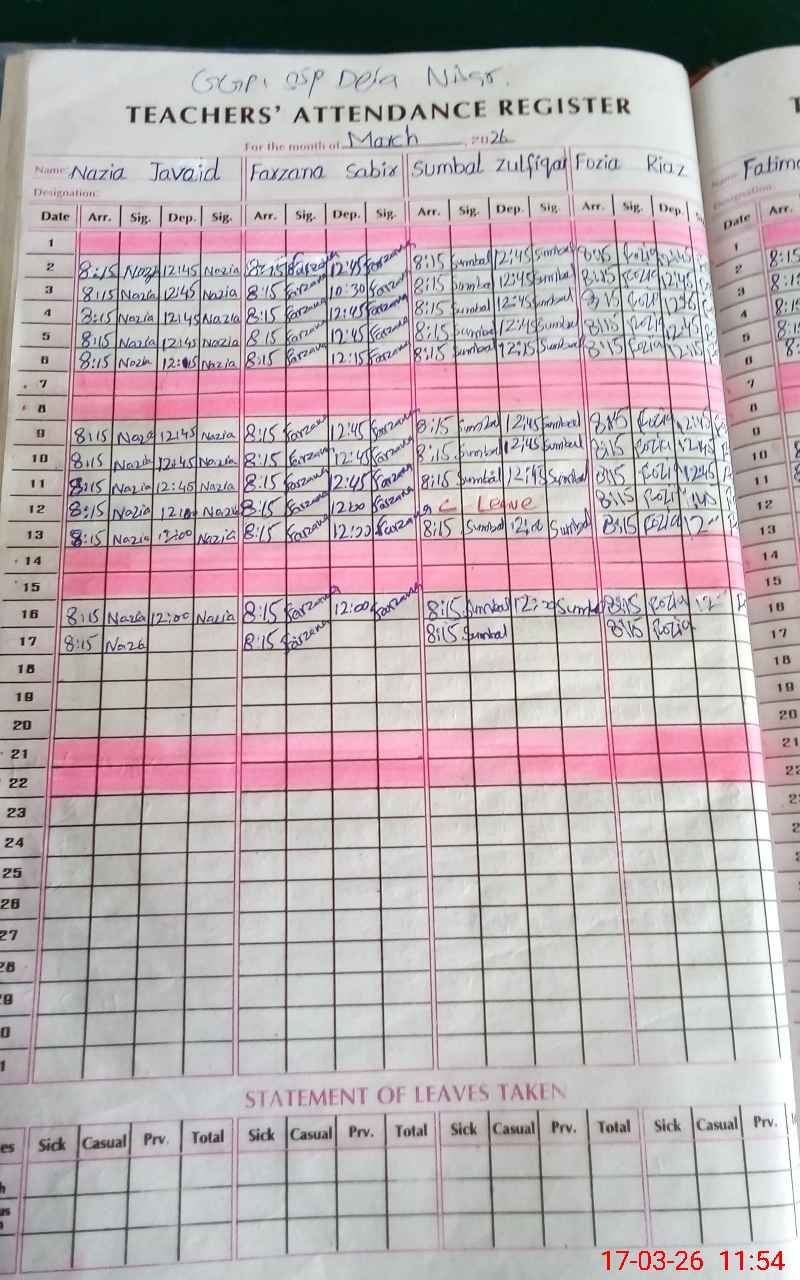 TEACHERS' ATTENDANCE REGISTER
For the month of March, 2026
Name: Nazia Javaid Farzana Sabir Sumbal Zulfiqar Fozia Riaz Name Fatima
Designation: Designation
Date Arr. Sig. Dep. Sig. Arr. Sig. Dep. Sig. Arr. Sig. Dep. Sig. Arr. Sig. Dep. Date Arr.
1 1
2 8:15 Nazia 12:45 Nazia 8:15 Farzana 12:45 Farzana 8:15 Sumbal 12:45 Sumbal 8:15 Fozia 12:45 2 8:15
3 8:15 Nazia 12:45 Nazia 8:15 Farzana 10:30 Farzana 8:15 Sumbal 12:45 Sumbal 8:15 Fozia 12:45 3
4 8:15 Nazia 12:45 Nazia 8:15 Farzana 12:45 Farzana 8:15 Sumbal 12:45 Sumbal 8:15 Fozia 4
5 8:15 Nazia 12:45 Nazia 8:15 Farzana 12:45 Farzana 8:15 Sumbal 12:45 Sumbal 8:15 Fozia 12:45 5
6 8:15 Nazia 12:15 Nazia 8:15 Farzana 12:15 Farzana 8:15 Sumbal 12:15 Sumbal 8:15 Fozia 12:15 6
7 7
8 8
9 8:15 Nazia 12:45 Nazia 8:15 Farzana 12:45 Farzana 8:15 Sumbal 12:45 Sumbal 8:15 Fozia 12:45 9
10 8:15 Nazia 12:45 Nazia 8:15 Farzana 12:45 Farzana 8:15 Sumbal 12:45 Sumbal 8:15 Fozia 12:45 10
11 8:15 Nazia 12:45 Nazia 8:15 Farzana 12:45 Farzana 8:15 Sumbal 12:45 Sumbal 8:15 Fozia 12:45 11
12 8:15 Nazia Nazia 8:15 Farzana 12:00 Farzana C Leave 8:15 Fozia 12
13 8:15 Nazia 12:00 Nazia 8:15 Farzana 12:00 Farzana 8:15 Sumbal 12:00 Sumbal 8:15 Fozia 13
14 14
15 15
16 8:15 Nazia 12:00 Nazia 8:15 Farzana 12:00 Farzana 8:15 Sumbal 12:00 Sumbal 8:15 Fozia 16
17 8:15 Nazia 8:15 Farzana 8:15 Sumbal 8:15 Fozia 17
18 18
19 19
20 20
21 21
22 22
23
24
25
26
27
28
29
STATEMENT OF LEAVES TAKEN
Sick Casual Prv. Total Sick Casual Prv. Total Sick Casual Prv. Total Sick Casual Prv.
17-03-26 11:54